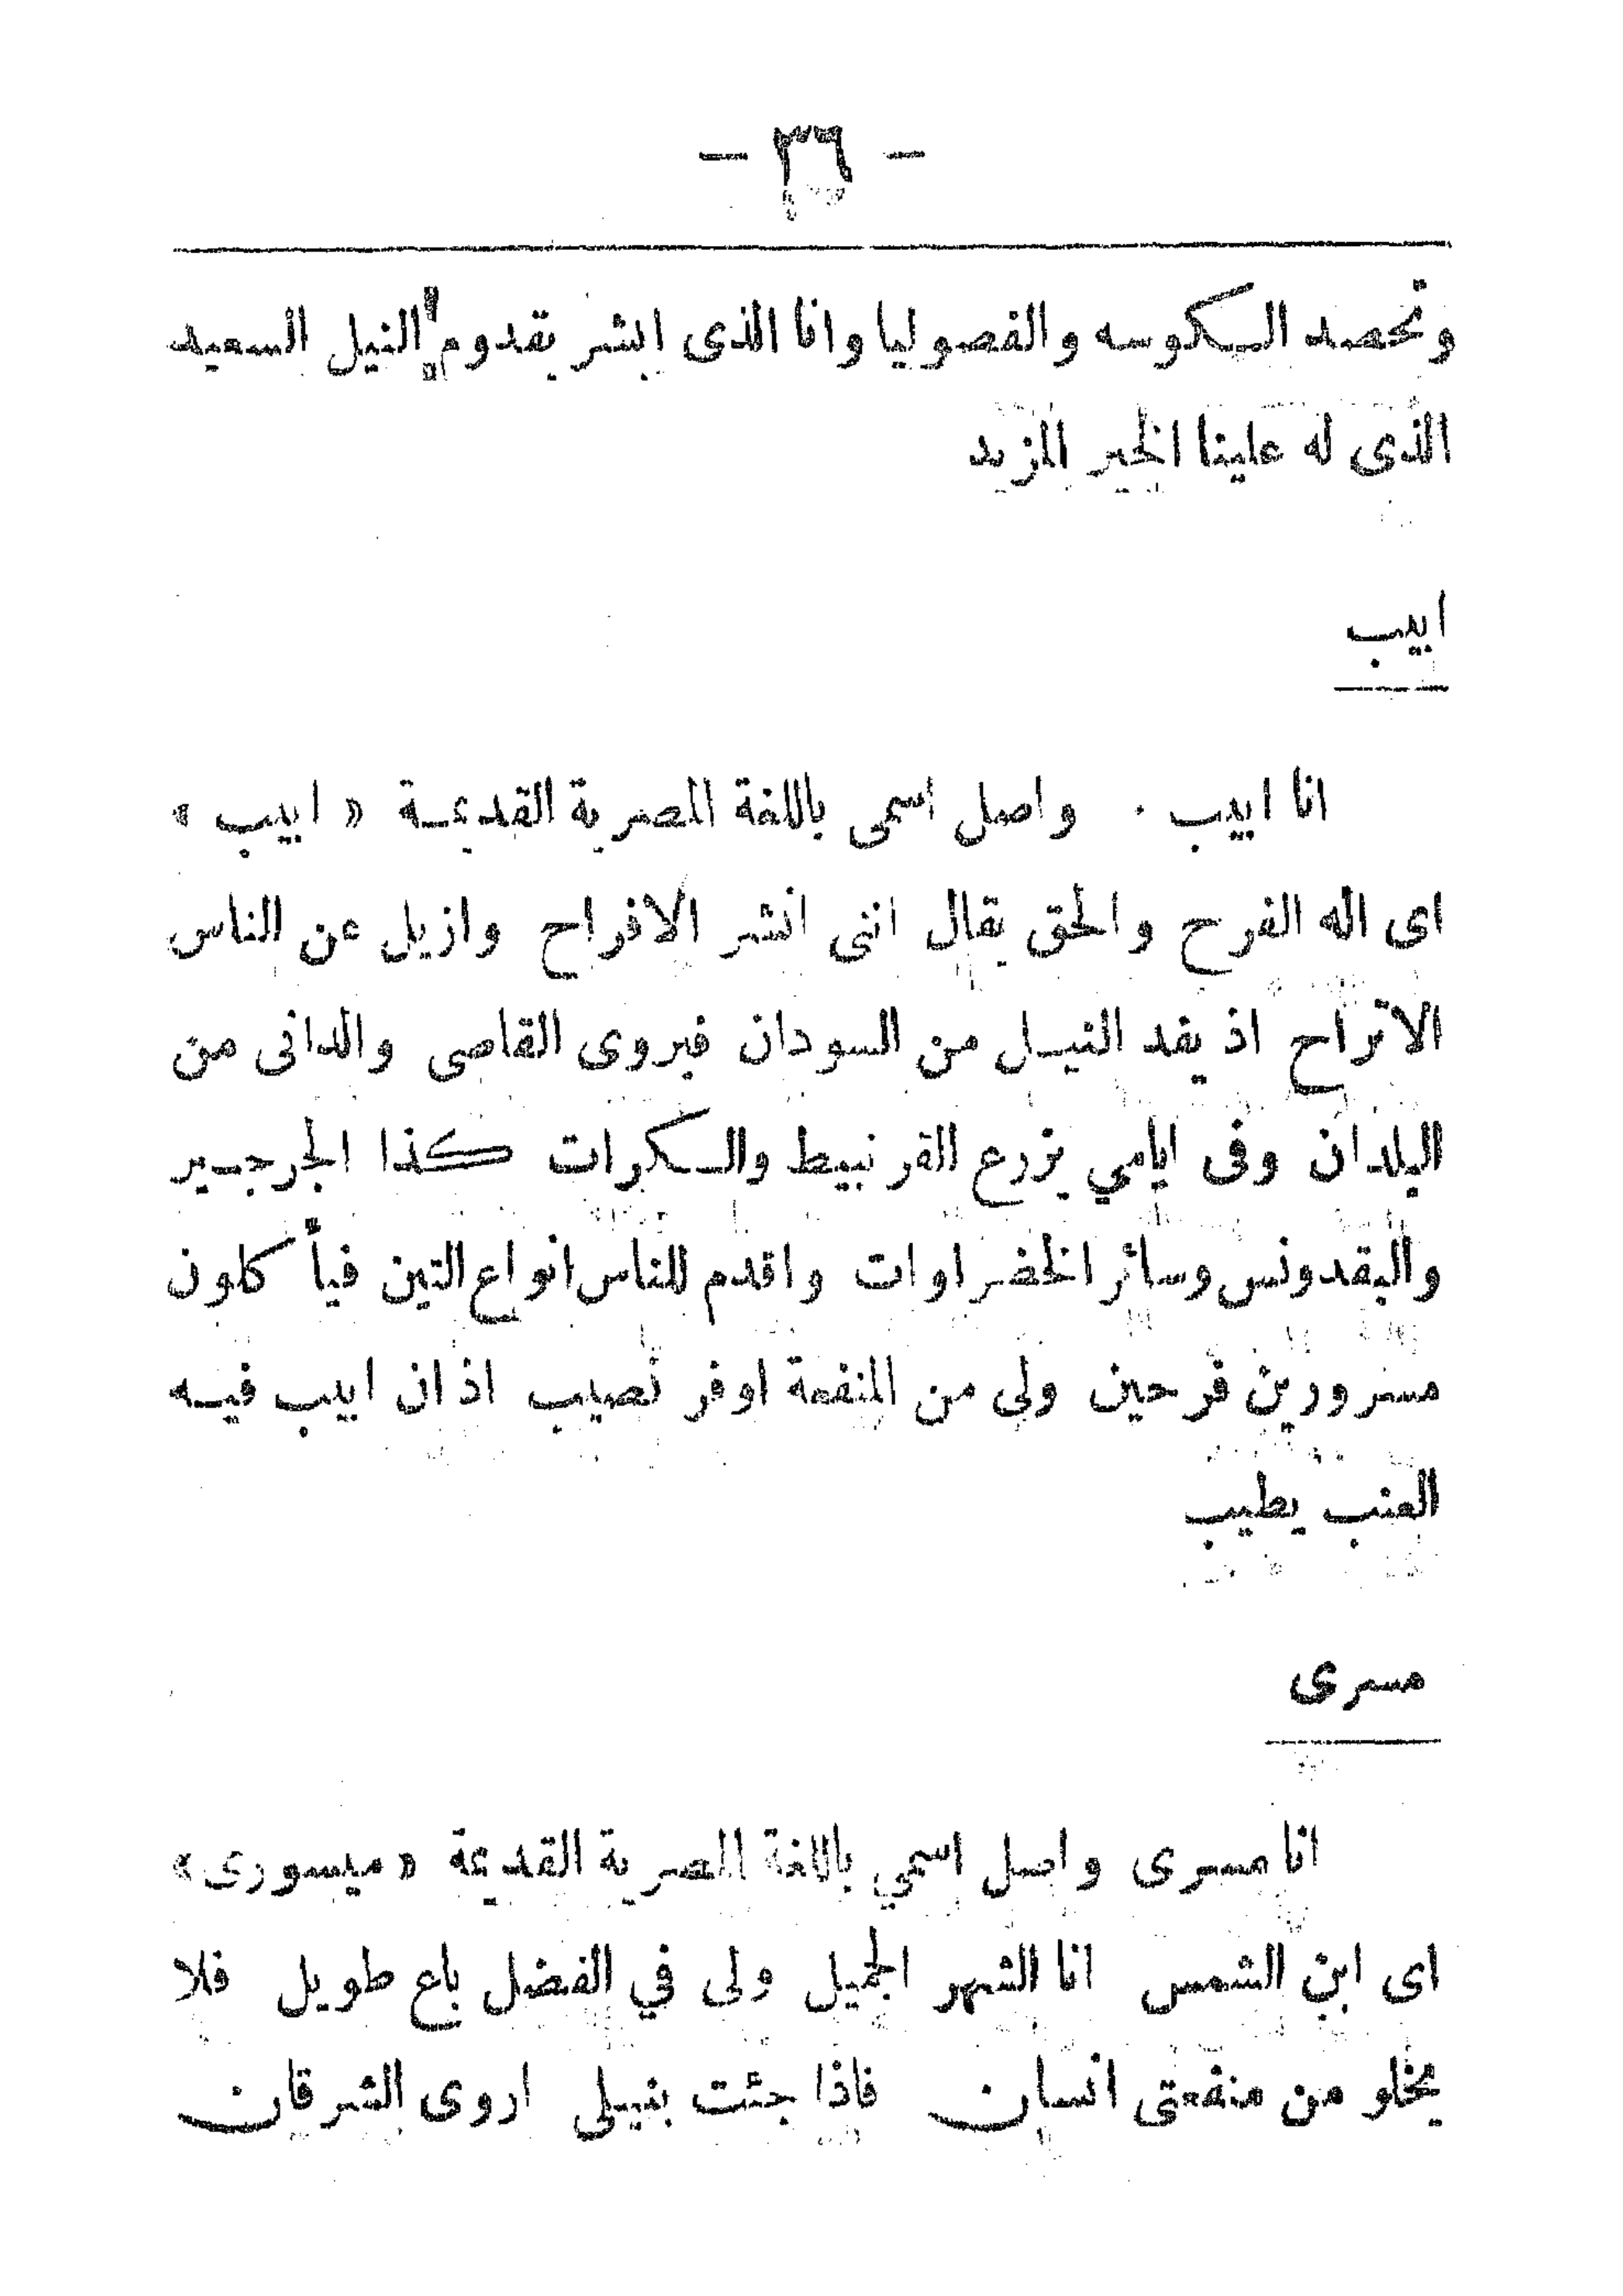 — ٣٦ —
وتحصد الكوسه والفصوليا وانا الذى ابشر بقدوم النيل السعيد
الذى له علينا الخير المزيد
ابيب
انا ابيب . واصل اسمى باللغة المصرية القديمة « ابيب »
اى اله الفرح والحق يقال اننى انشر الافراح وازيل عن الناس
الاتراح اذ يفد النيل من السودان فيروى القاصى والدانى من
البلدان وفى ايامي يزرع القرنبيط والكرات كذا الجرجير
والبقدونس وسائر الخضراوات واقدم للناس انواع التين فيأكلون
مسرورين فرحين ولى من المنفعة اوفر نصيب اذ ان ابيب فيه
العنب يطيب
مسرى
انا مسرى واصل اسمي باللغة المصرية القديمة « ميسورى »
اى ابن الشمس انا الشهر الجميل ولى في الفضل باع طويل فلا
يخلو من منفعتى انسان فاذا جئت بنيلى اروى الشرقان